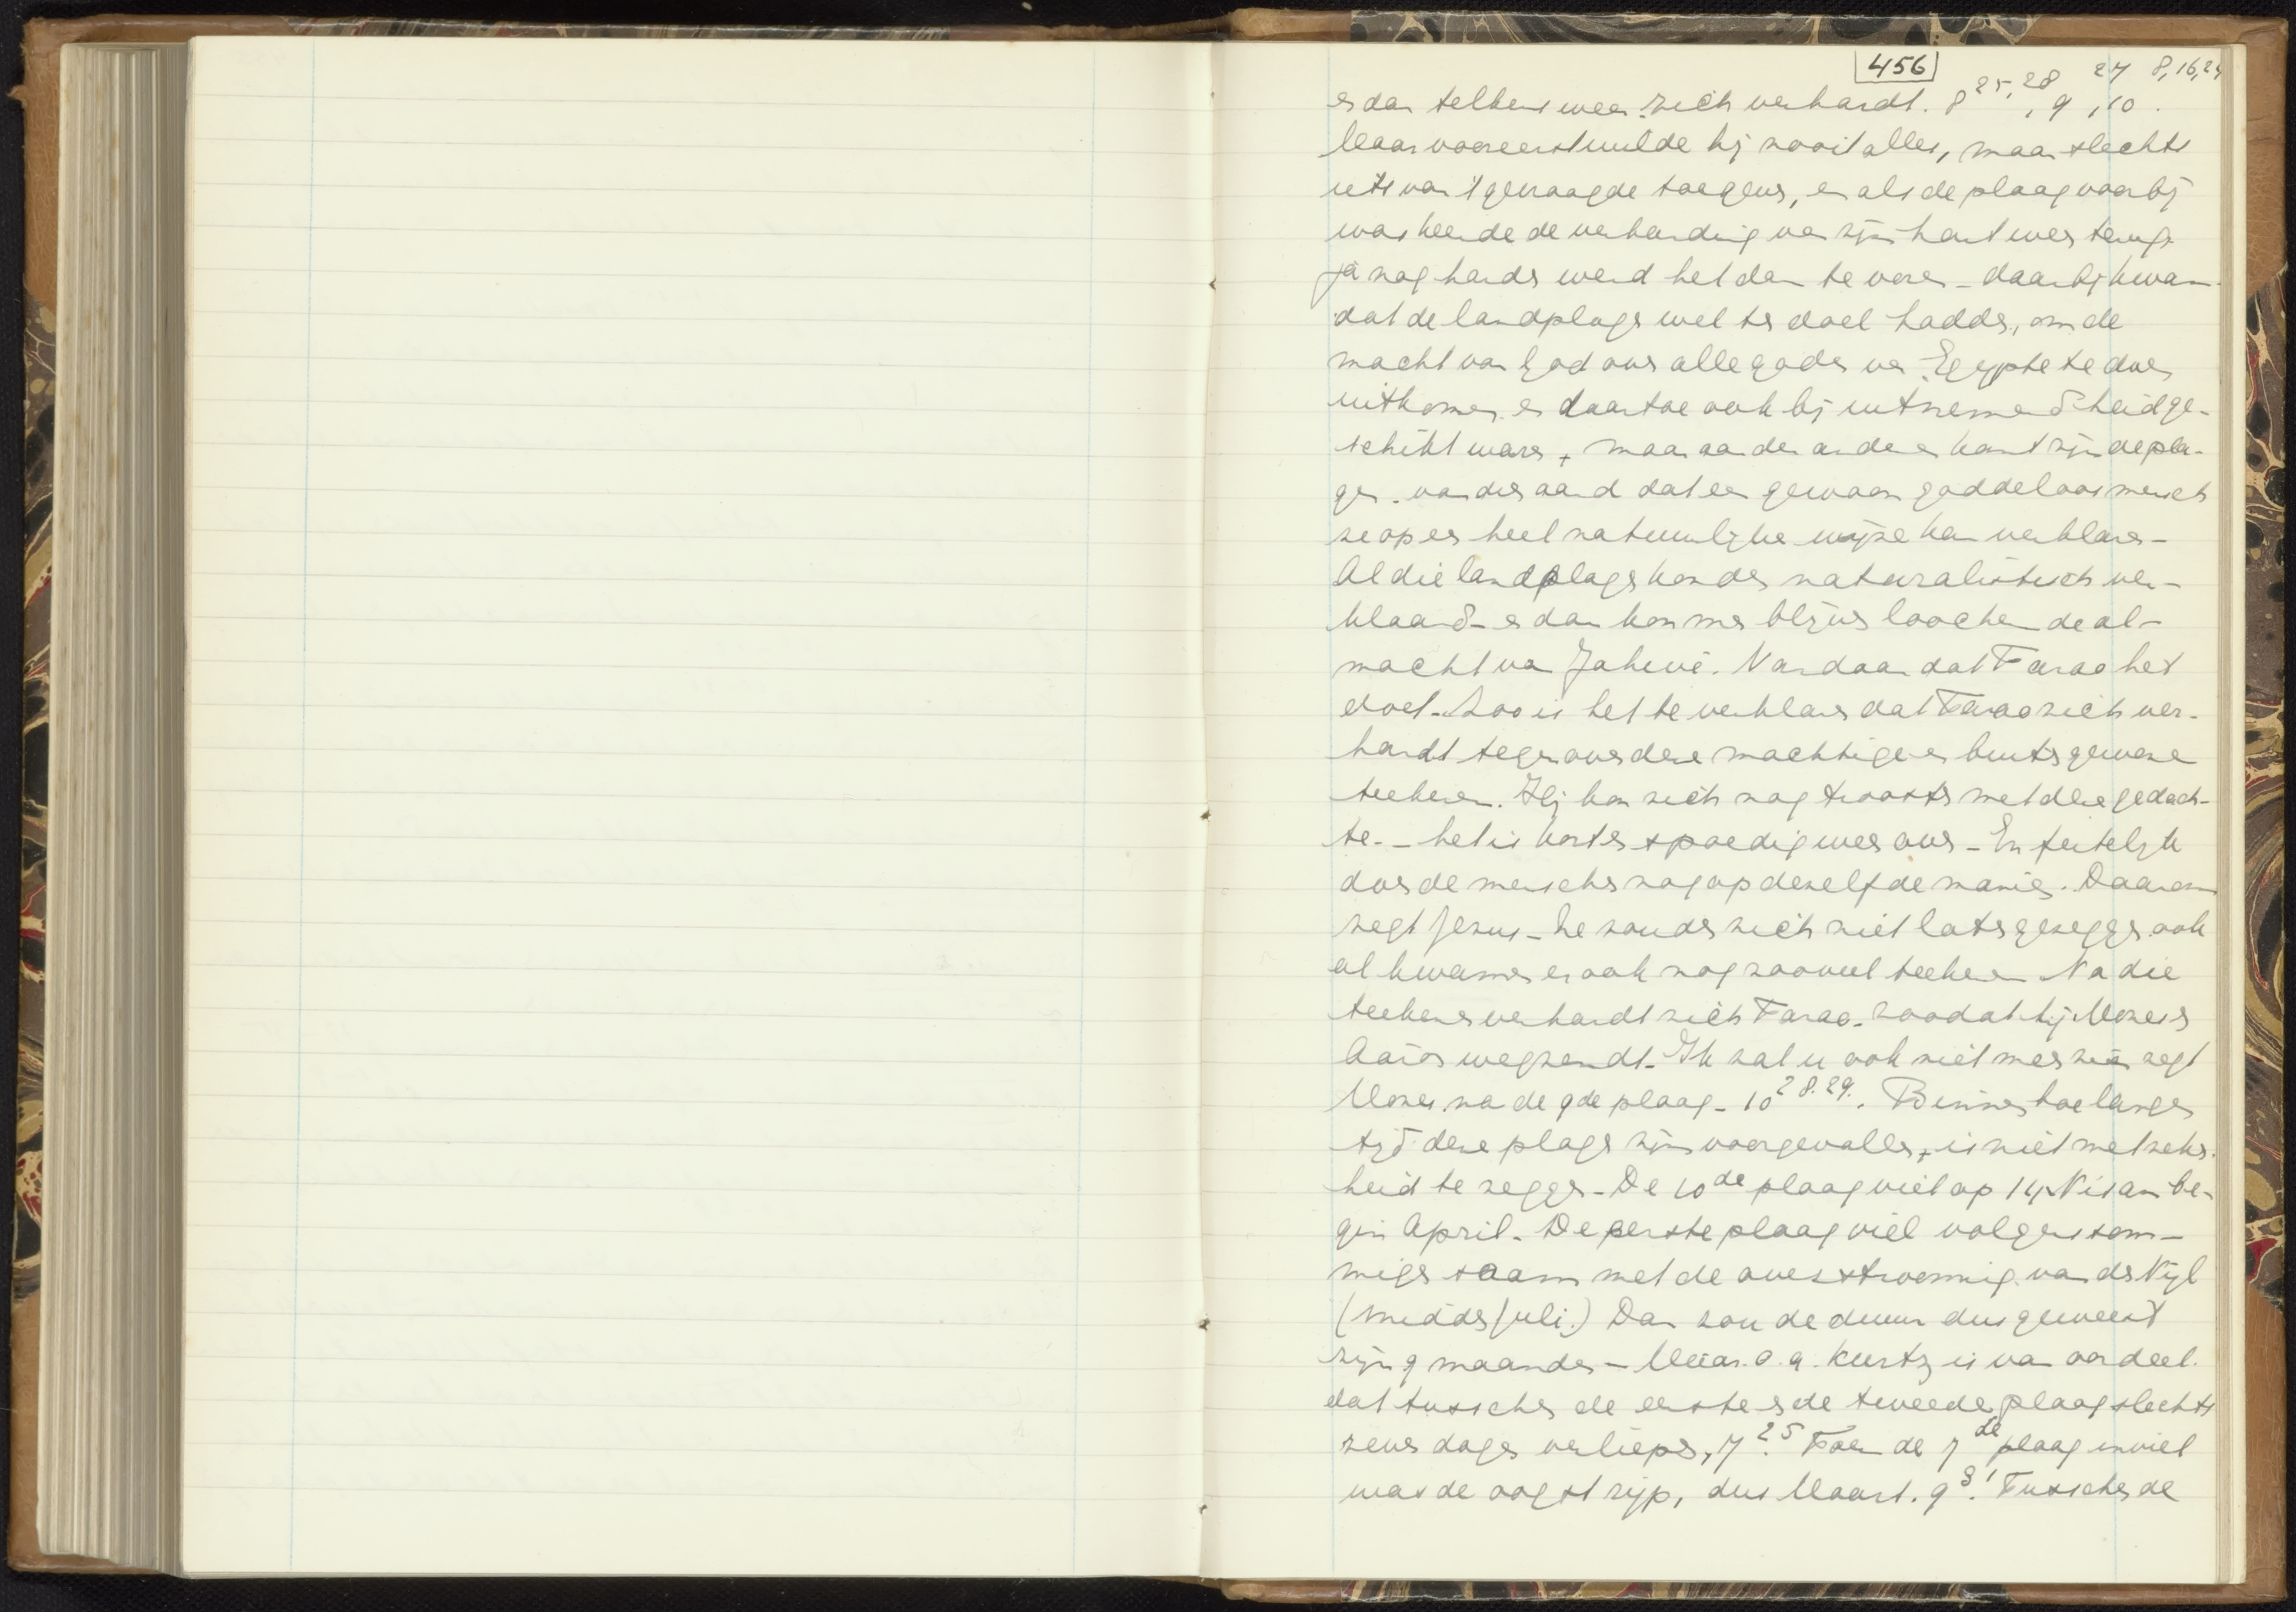 456
en dan telkens weer zich verhardt. 8 25,28, 9 27, 10 8,16,24.
Maar vooreerst wilde hij nooit alles, maar slechts
iets van 't gevraagde toegeven, en als de plaag voorbij
was keerde de verharding van zijn hart weer terug.
ja nog harder werd het dan te voren - daarbij kwam
dat de landplagen wel ten doel hadden, om de
macht van God over alle goden van Egypte te doen
uitkomen en daartoe ook bij uitnemendheid ge-
schikt waren, maar aan den anderen kant zijn de pla-
gen van dien aard dat een gewoon goddeloos mensch
ze op een heel natuurlijke wijze kan verklaren -
Al die landplagen konden naturalistisch ver-
klaard - en dan kon men blijven loochenen de al-
macht van Jahwé. Vandaar dat Farao het
doet. Zoo is het te verklaren dat Farao zich ver-
hardt tegenover deze machtige en buitengewone
teekenen. Hij kon zich nog troosten met deze gedach-
te - het is kort en spoedig weer over - En feitelijk
doen de menschen nog op dezelfde manier. Daarom
zegt Jezus - ze zouden zich niet laten gezeggen ook
al kwamen er ook nog zooveel teekenen Na die
teekenen verhardt zich Farao zoodat hij Mozes en
Aäron wegzendt. Ik zal u ook niet meer zien zegt
Mozes na de 9de plaag - 10 28.29. Binnen hoe langen
tijd deze plagen zijn voorgevallen, is niet met zeker-
heid te zeggen - De 10de plaag viel op 14 Nisan be-
gin April. De eerste plaag viel volgens som-
migen saam met de overstrooming van den Nijl
(midden Juli.) Dan zou de duur dus geweest
zijn 9 maanden - Maar o.a. Kurtz is van oordeel
dat tusschen de eerste en de tweede plaag slechts
zeven dagen verliepen, 7 25. Toen de 7de plaag inviel
was de oogst rijp, dus Maart. 9 31. Tusschen de